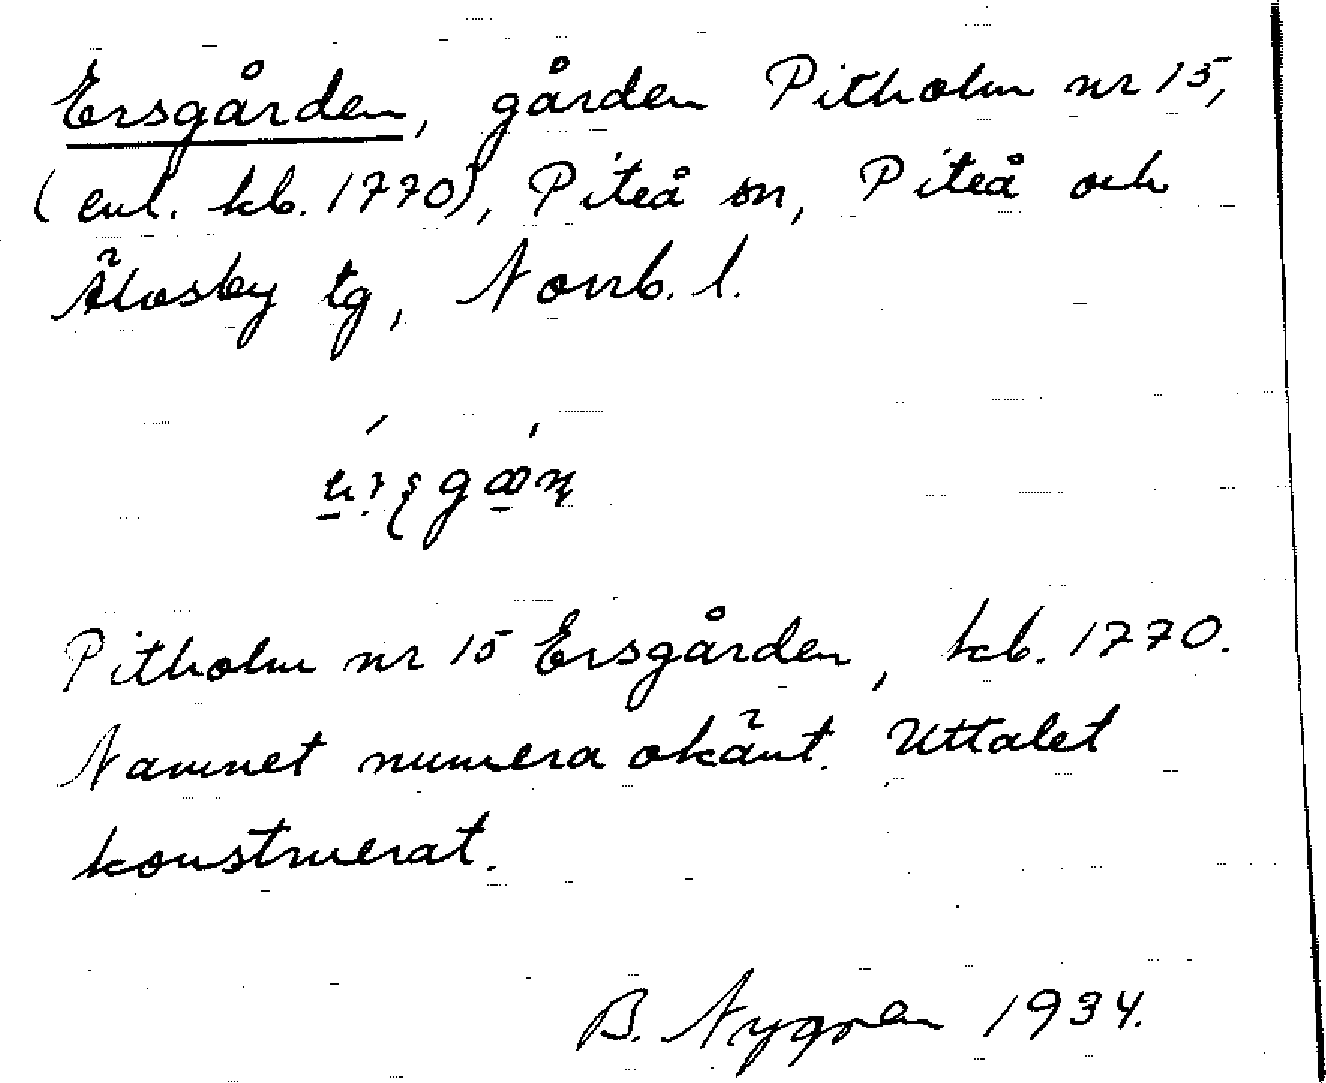 Ersgården, gården Pitholm nr 15,
(enl. kb. 1770), Piteå sn, Piteå och
Älvsby tg, Norrb. l.
Pitholm nr 15 Ersgården, kb. 1770.
Namnet numera okänt. Uttalet
konstruerat.
B. Nygren 1934.